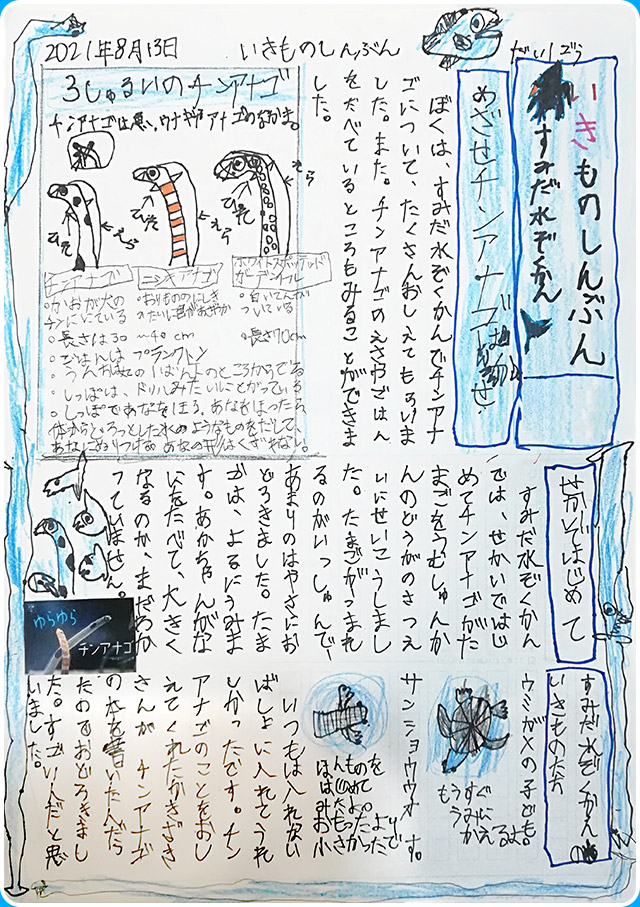 2021年8月13日
いきものしんぶん
だいぞう
いきものしんぶん
すみだ水ぞくかん
めざせチンアナゴ
ぼくは、すみだ水ぞくかんでチンアナ
ゴについて、たくさんおしえてもらいま
した。また。チンアナゴのえさやごはん
をたべているところもみることができま
した。
3しゅるいのチンアナゴ
えら
えら
えら
ひれ
チンアナゴ
ニシキアナゴ
ホワイトスポッテッド
ガーデンイール
・かおが犬の
チンににている
・長さは30〜40cm
・おりもののにしき
・白いてんが
ついている
・長さ70cm
・ごはんはプランクトン
・しっぽは、ドリルみたいにとがっている
・しっぽであなをほる。あなをほったら、
せかいではじめて
すみだ水ぞくかん
では、せかいではじ
めてチンアナゴがた
まごをうむしゅんか
んのどうがのさつえ
いにせいこうしまし
た。たまごがうまれ
るのがいっしゅんで、
あまりのはやさにお
どろきました。たま
ごは、よるにうみま
す。あかちゃんがな
にをたべて、大きく
なるのか、まだわか
っていません。
ゆらゆら
チンアナゴ
すみだ水ぞくかんの
いきものたち
ウミガメの子ども。
もうすぐ
うみに
かえるよ
サンショウウオ
いつもは入れない
ばしょに入れてうれ
しかったです。チン
アナゴのことをおし
えてくれたかきざき
さんが、チンアナゴ
の本を書いたんだ
たのでおどろきまし
た。すごいんだと思
いました。